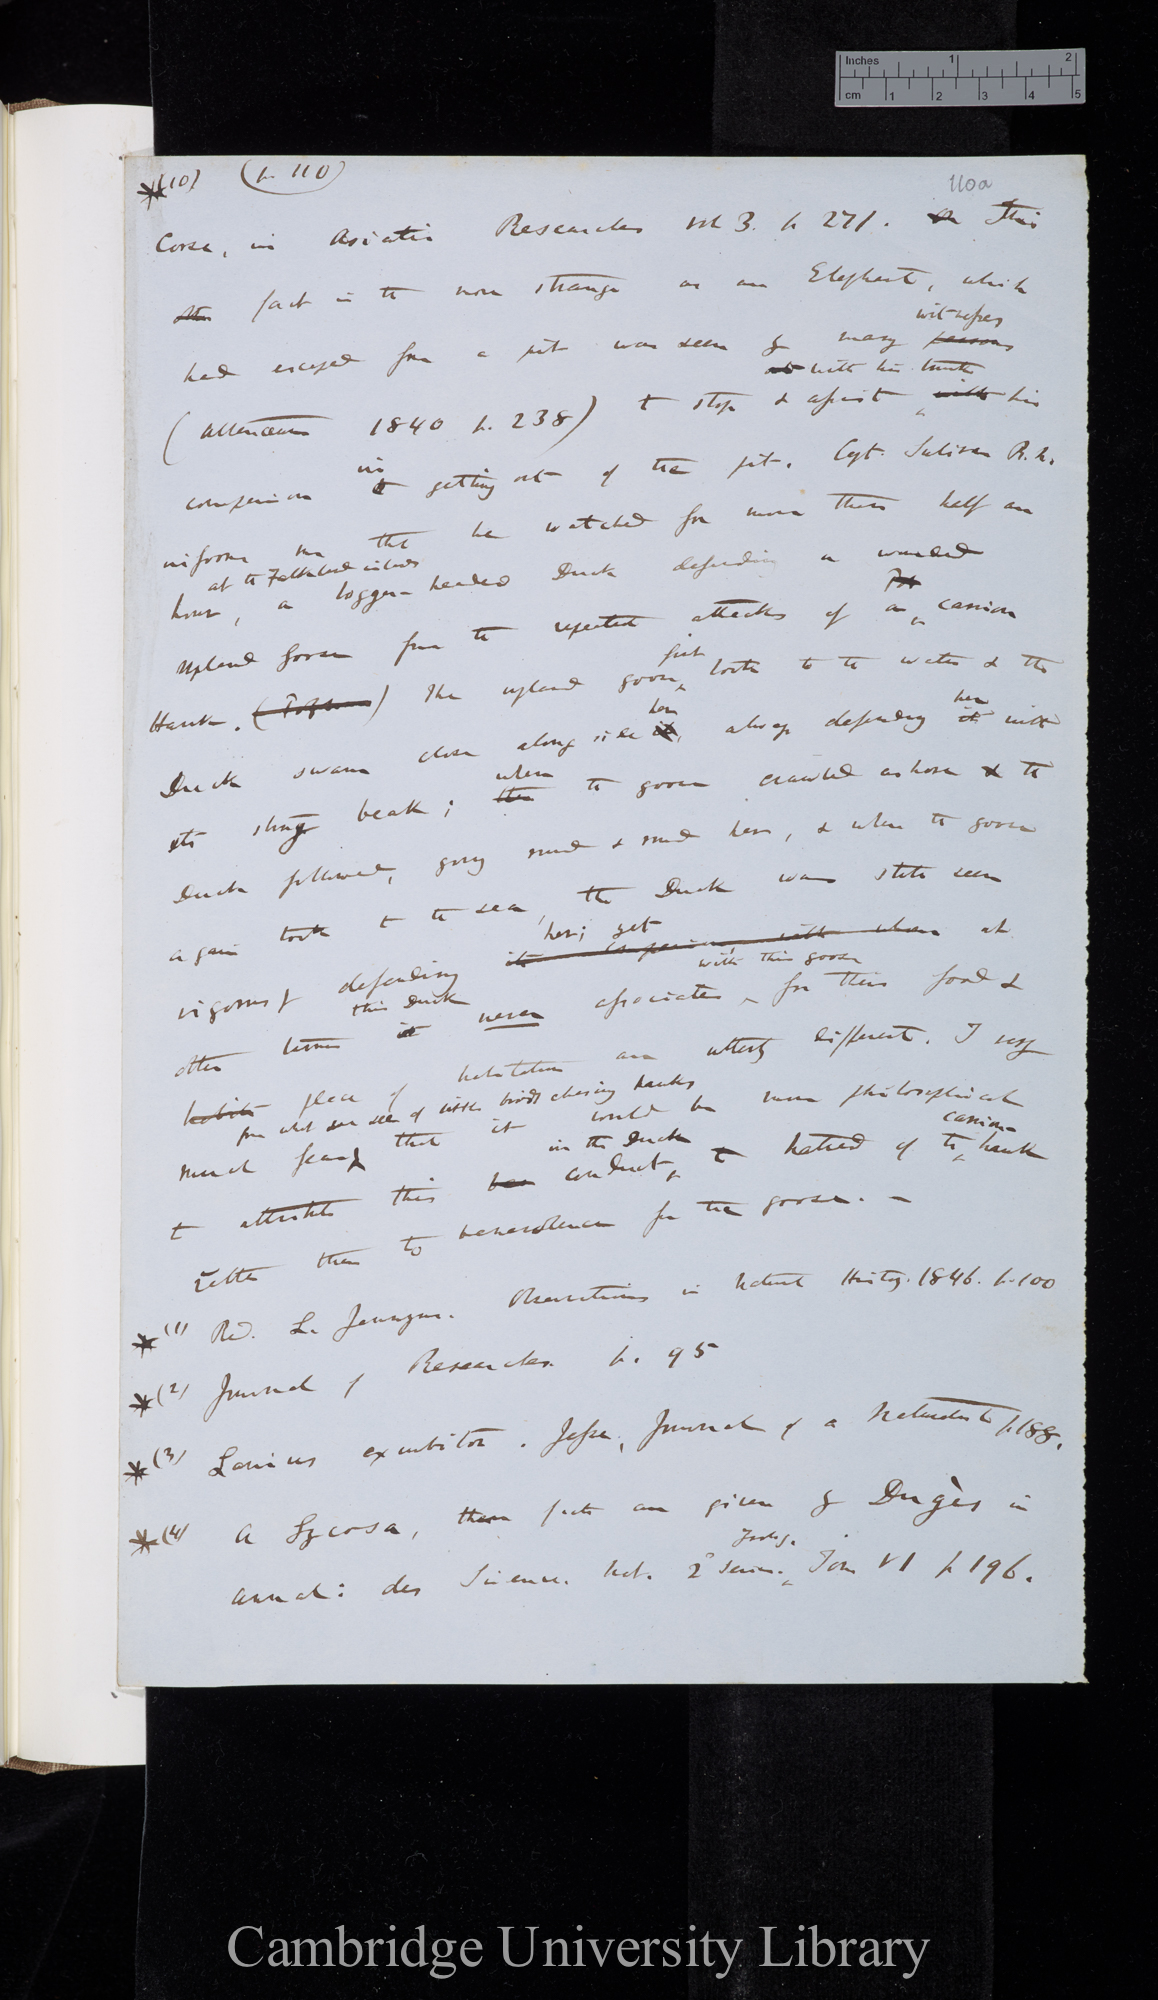 Inches 1 2
cm 1 2 3 4 5
*(10) (p. 110)
110a
Corse, in Asiatic Researches vol 3. p 271. This
fact is the more strange as an Elephant, which
witnesses
had escaped from a pit was seen by many persons
with his trunk
(Athenæum 1840 p. 238) to stop & assist with his
in
companion to getting out of the pit. Capt. Sulivan R.N.
informs me that he watched for more than half an
at the Falkland islands
hour, a logger-headed Duck defending a wounded
upland Goose from the repeated attacks of a carrion
first
Hawk. The upland goose took to the water & the
her her
Duck swam close along side it, always defending it with
when
its strong beak; then the goose crawled ashore & the
Duck followed, going round & round her, & when the goose
again took to the sea, the Duck was still seen
her; yet
vigorously defending it at
this Duck with this goose
other times it never associates, for their food &
habits place of habitation are utterly different. I very
from what we see of little birds chasing hawks
much fear, that it would be more philosophical
in the Duck carrion
to attribute this conduct, to hatred of the hawk
rather than to benevolence for the goose. —
*(1) Rev. L. Jenyns. Observations in Natural History. 1846. p. 100
*(2) Journal of Researches. p. 95
*(3) Lanius excubitor. Jesse, Journal of a Naturalist p. 188.
*(4) A Lycosa, these facts are given by Dugès in
Zoolog.
Annal: des Scienc. Nat. 2° Series. Tom VI p 196.
Cambridge University Library